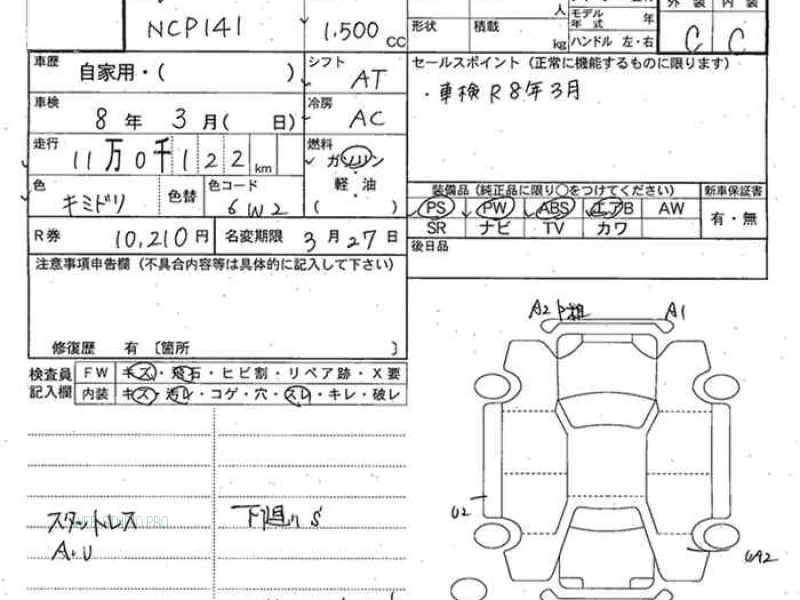 人 モデル年式 年 外装 内装
NCP141 1,500 CC 形状 積載 kg ハンドル 左・右 C C
車歴 自家用・( ) シフト AT セールスポイント (正常に機能するものに限ります)
車検 8年 3月( 日) 冷房 AC ・車検 R8年3月
走行 11万0千122 km 燃料 ガソリン
軽・油
( )
色 キミドリ 色替 色コード 6W2
装備品 (純正品に限り○をつけてください) 新車保証書
PS PW ABS エアB AW 有・無
SR ナビ TV カワ
R券 10,210円 名変期限 3月27日
後日品
注意事項申告欄 (不具合内容等は具体的に記入して下さい)
修復歴 有 〔箇所 〕
検査員記入欄 FW キズ・飛石・ヒビ割・リペア跡・X要
内装 キズ・汚レ・コゲ・穴・スレ・キレ・破レ
A2 A1
U2
スタットレス 下廻り S
A・U